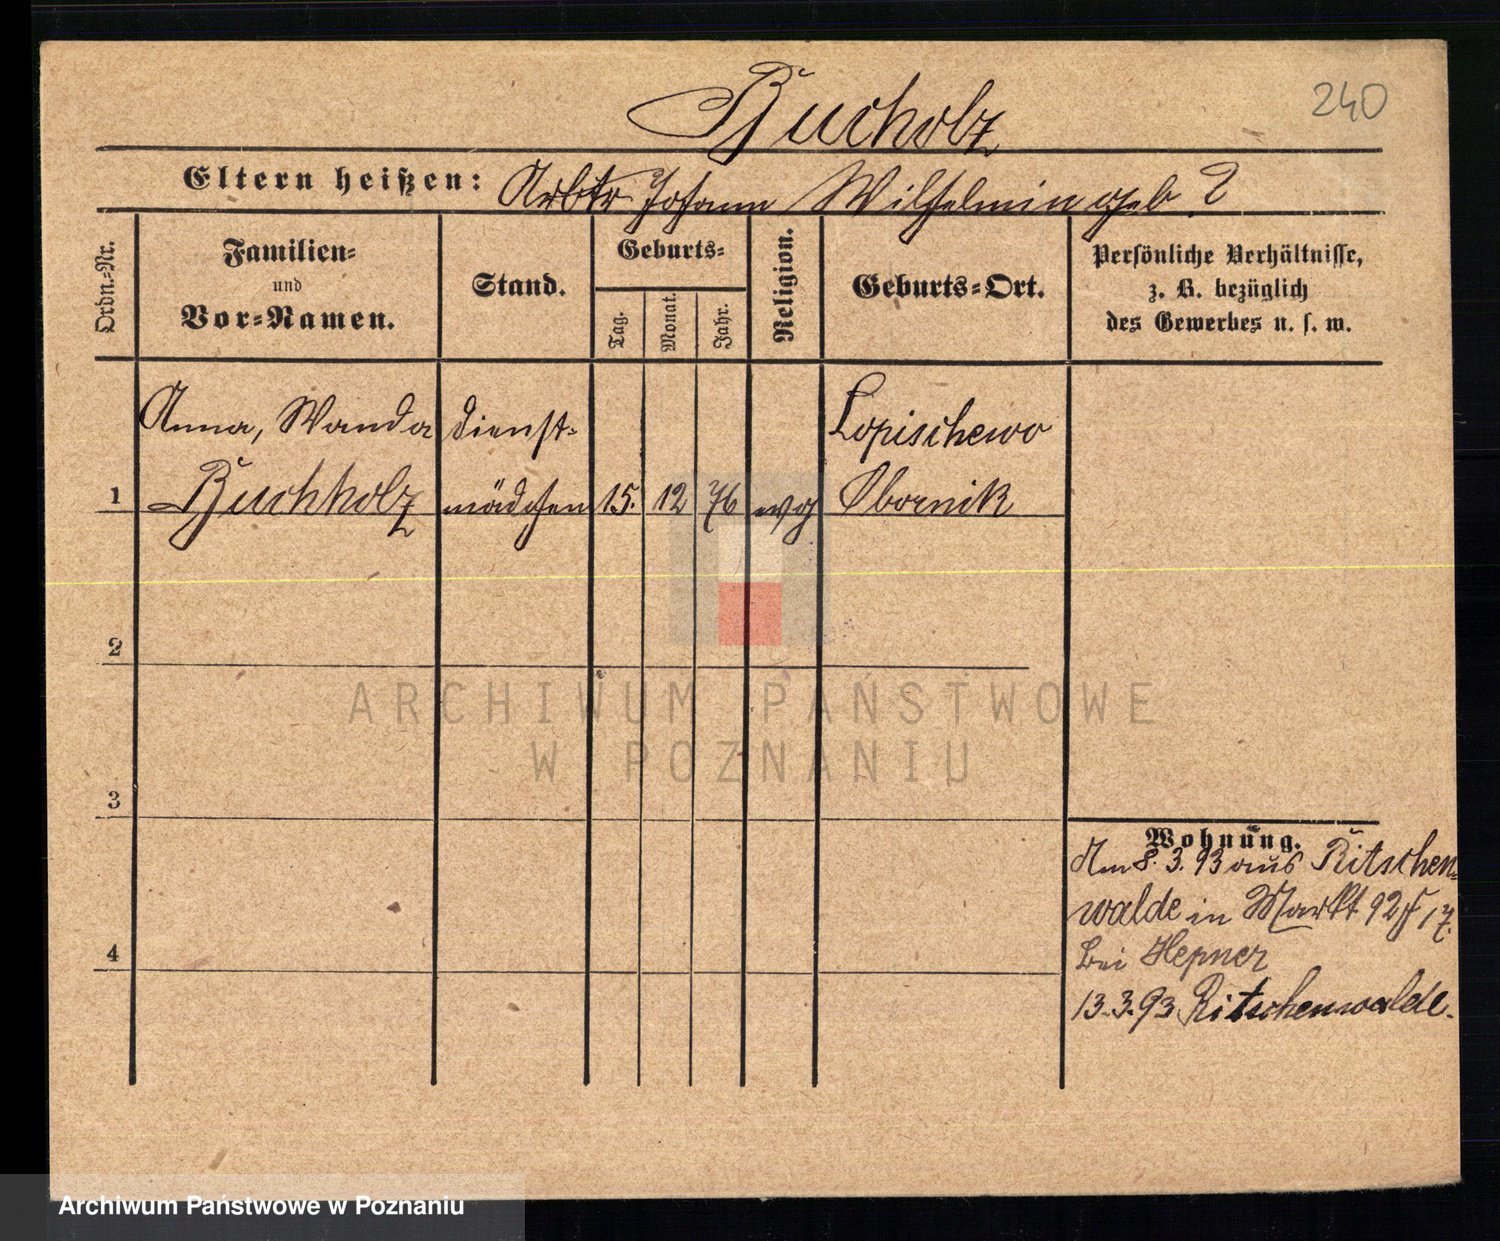 240
Bucholz
Eltern heißen: Arbtr Johann Wilhelmin geb. ?
Ordn.-Nr.
Familien-
und
Vor-Namen.
Stand.
Geburts-
Tag.
Monat.
Jahr.
Religion.
Geburts-Ort.
Persönliche Verhältnisse,
z. B. bezüglich
des Gewerbes u. s. w.
Anna, Wanda dienst- Lopischewo
1 Buchholz mädchen 15. 12 76 evg Obornik
2
3
4
Wohnung.
Am 8. 3. 93 aus Ritschen-
walde in Markt 92 17.
bei Hepner
13.3.93 Ritschenwalde.
ARCHIWUM PAŃSTWOWE
W POZNANIU
Archiwum Państwowe w Poznaniu